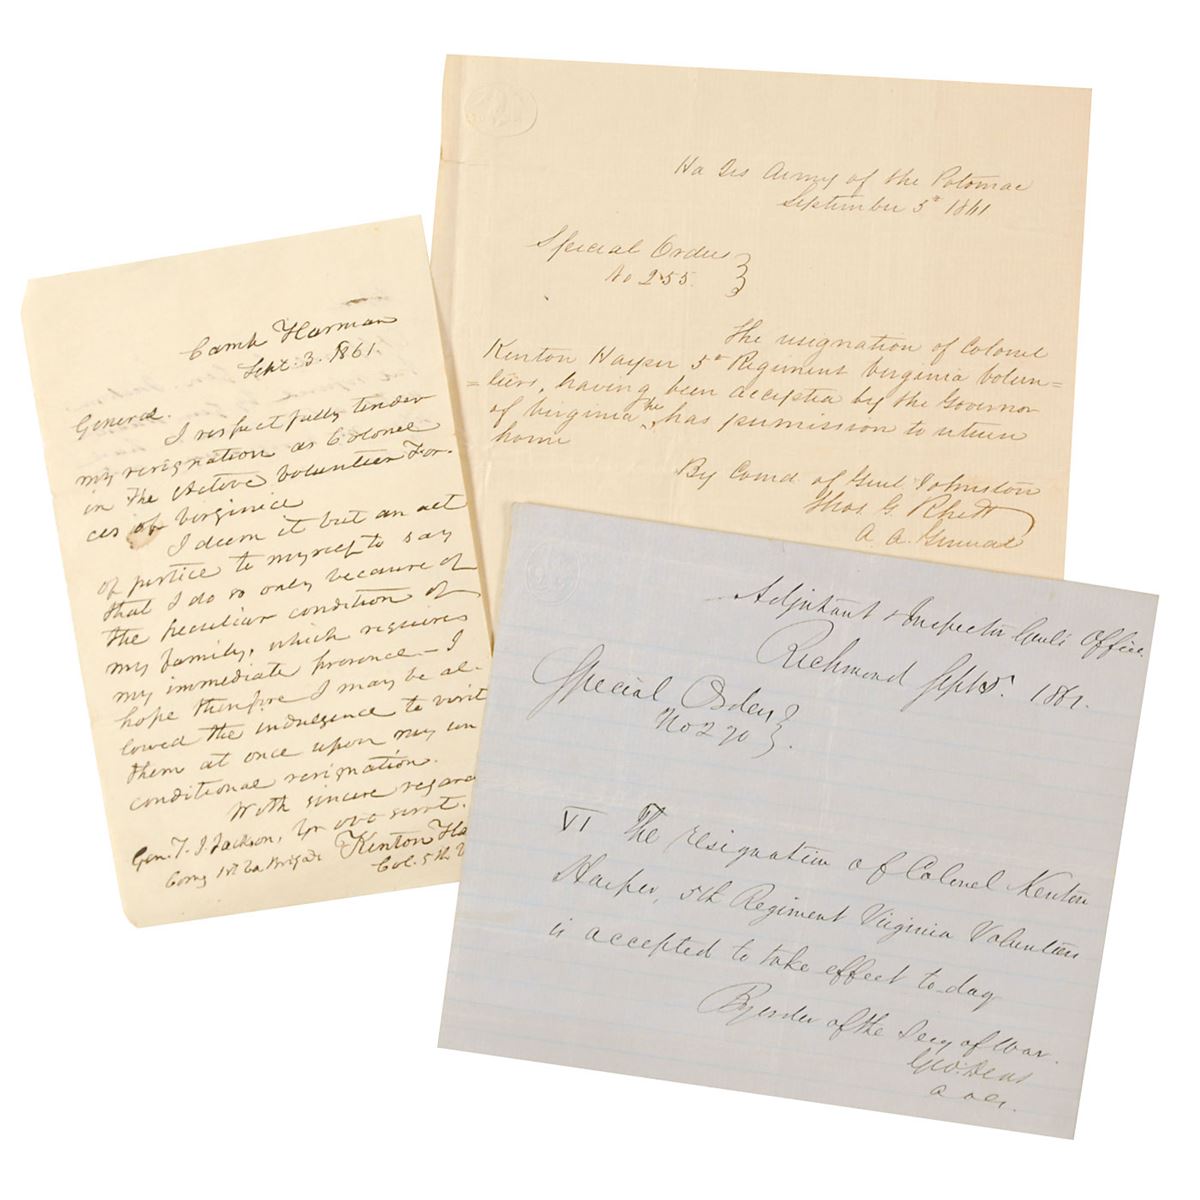 Camp Harman
Sept. 3. 1861.
General.
I respectfully tender
my resignation as Colonel
in the Active Volunteer For-
ces of Virginia
I deem it but an act
of justice to myself to say
that I do so only because of
the peculiar condition of
my family, which requires
my immediate presence – I
hope therefore I may be al-
lowed the indulgence to visit
them at once upon my un
conditional resignation.
With sincere regard
Gen. T. J. Jackson, Yr obt servt.
Comg 1st Va Brigade Kenton Ha
Col. 5th V
Hd Qrs Army of the Potomac
September 5th 1861
Special Orders }
No 255.
The resignation of Colonel
Kenton Harper 5th Regiment Virginia Volun=
=teers, having been accepted by the Governor
of Virginia, he has permission to return
home
By Comd of Genl Johnston
Thos G. Rhett
A. A. General
Adjutant & Inspector Genl's Office.
Richmond Sept 5. 1861.
Special Orders }
No 270 }.
VI The resignation of Colonel Kenton
Harper, 5th Regiment Virginia Volunteers
is accepted to take effect to-day
By order of the Secy of War.
Geo. Deas
A. A. G.